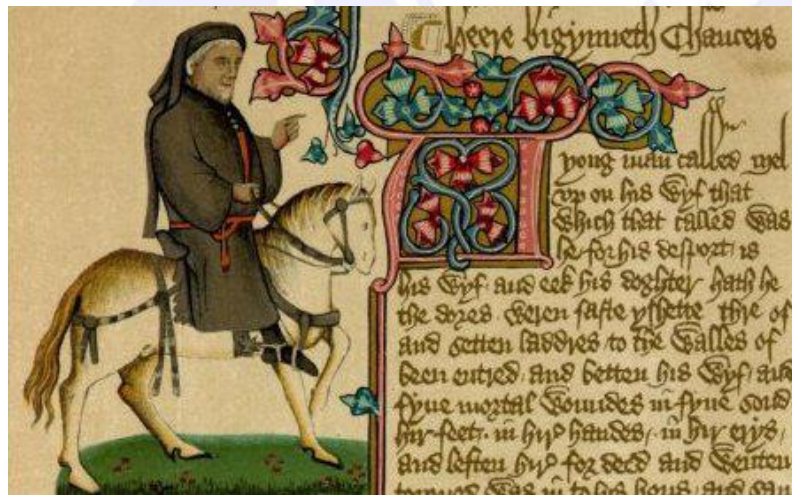 heere bigynneth Chaucers
A yong man called Mel
vp on his wyf that
Which that called was
he for his desport is
his wyf and eek his doghter hath he
the dores weren faste yshette thre of
and setten laddres to the walles of
been entred and betten his wyf and
fyue mortal woundes in fyue sond
hir feet in hir handes in hir erys
and leften hir for deed and wenten
torned was in to his hous and sau